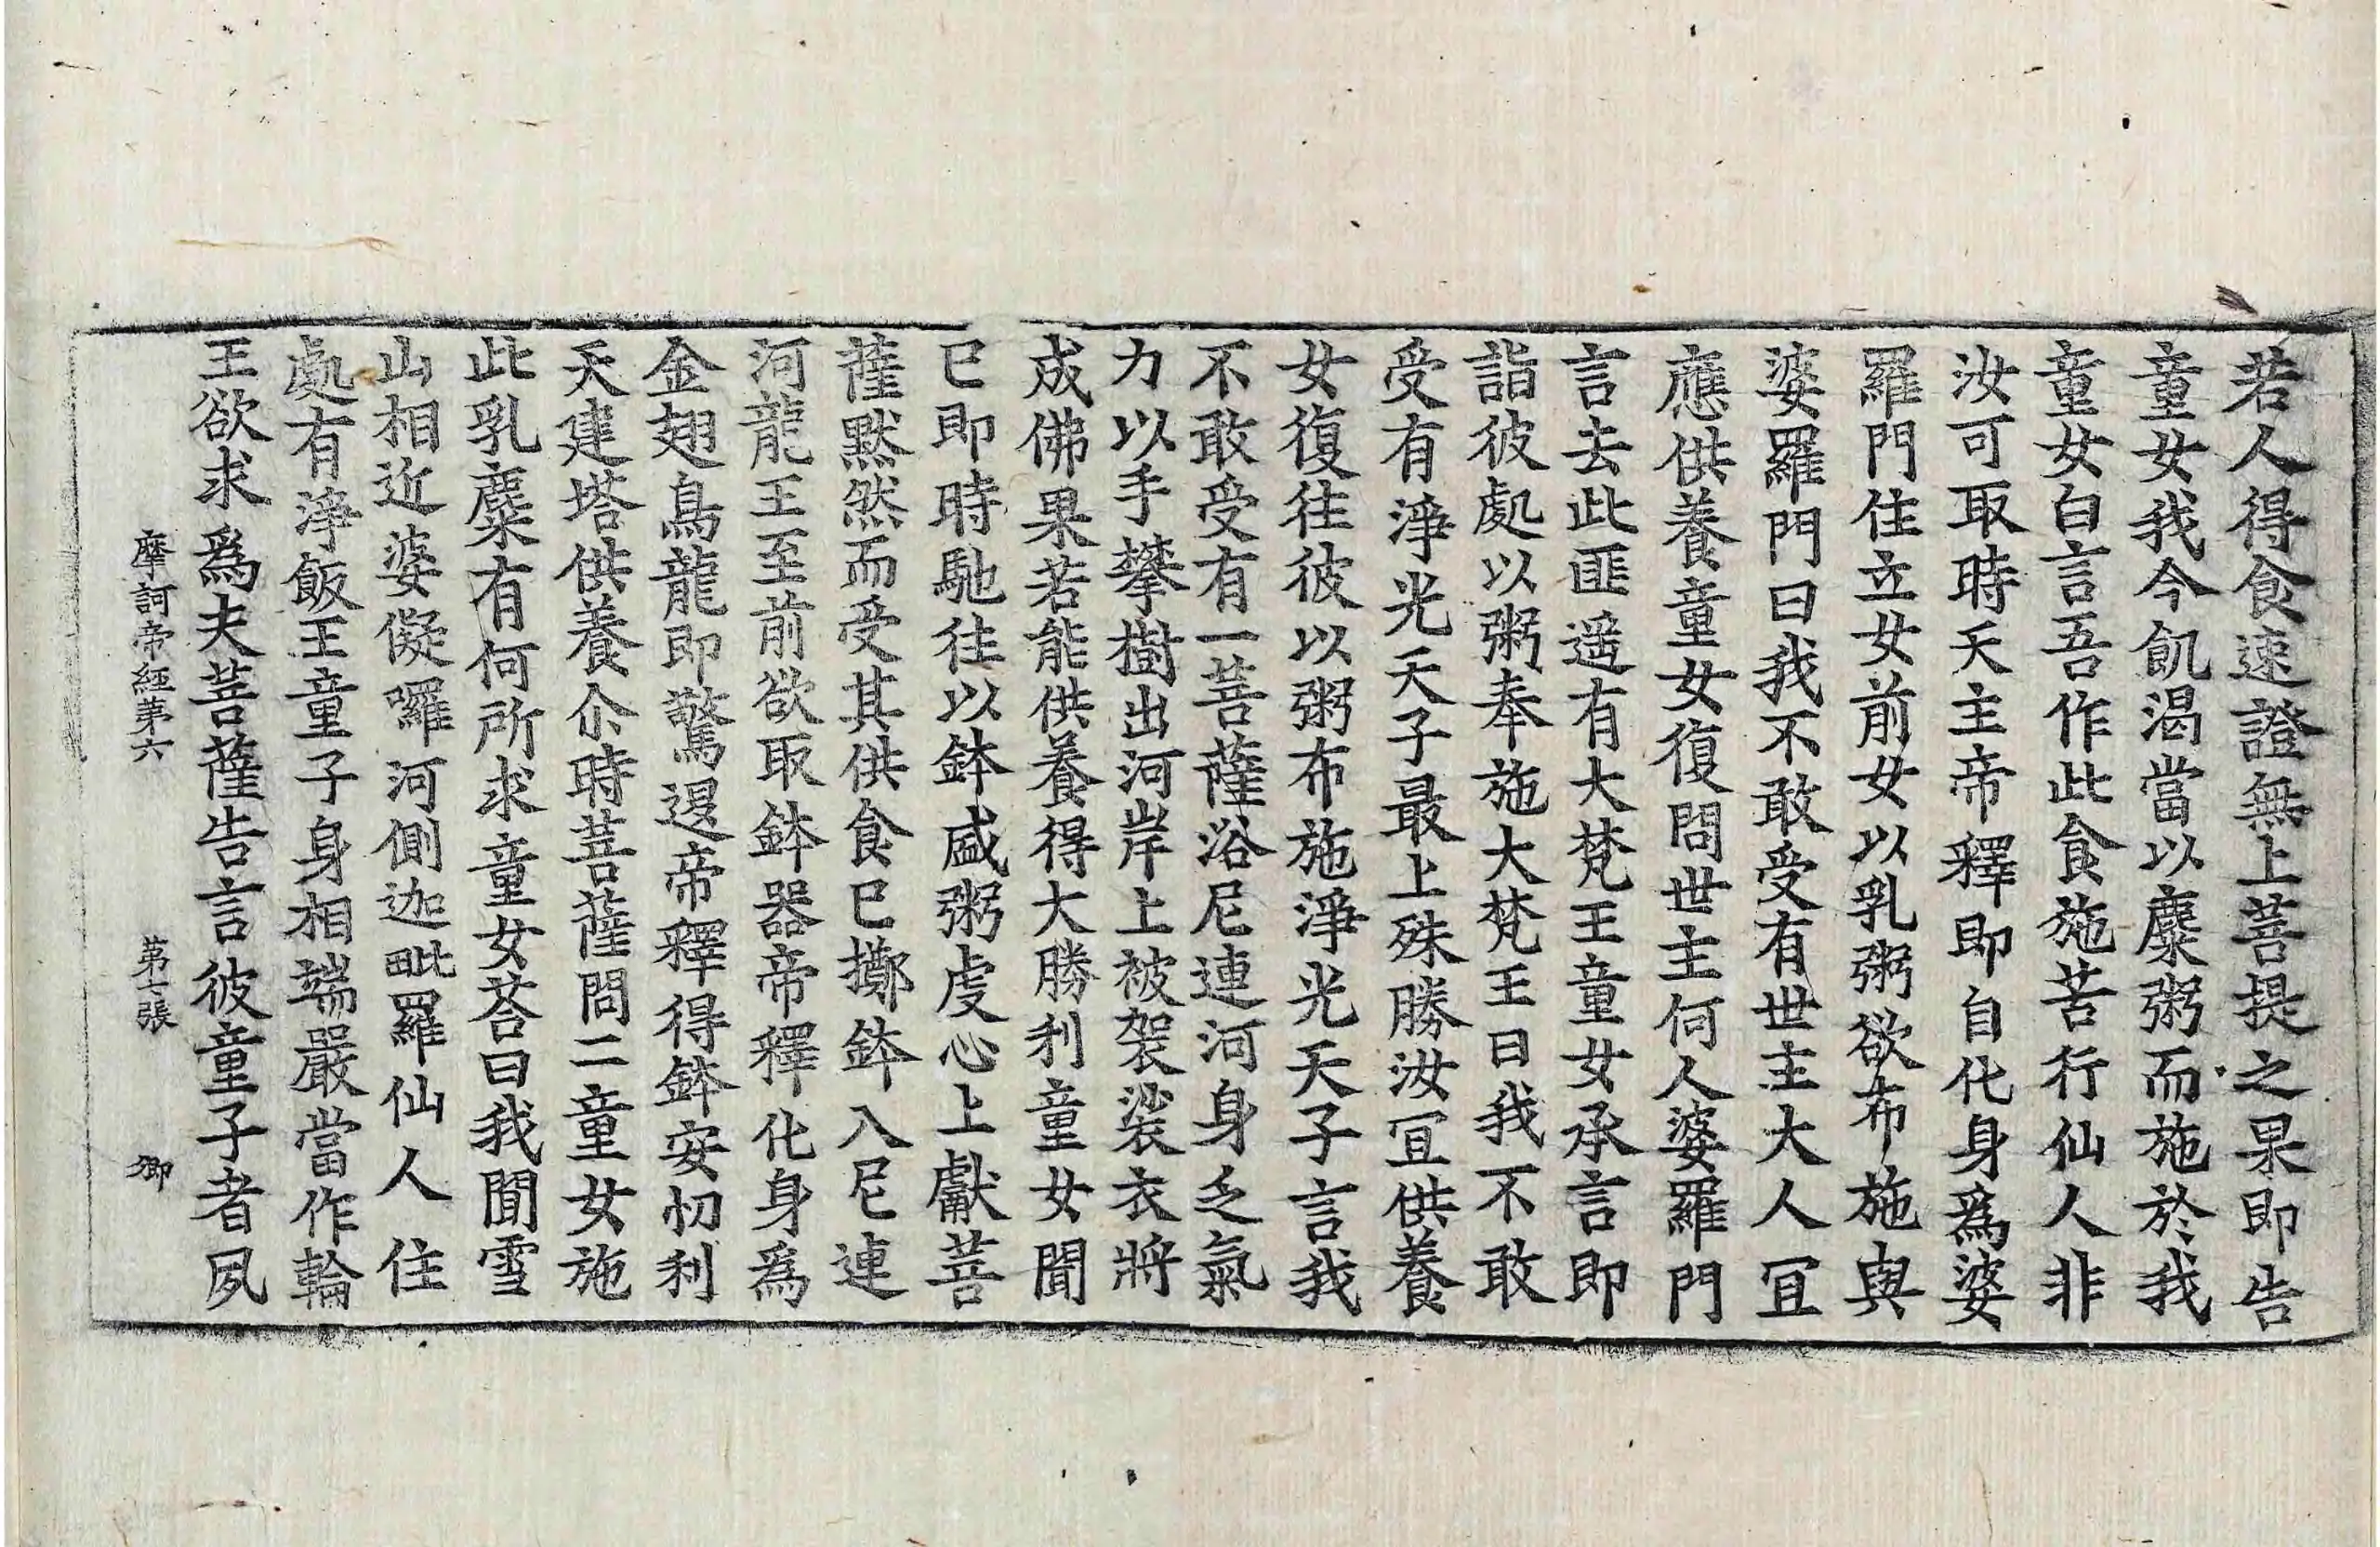 若人得食速證無上菩提之果即告
童女我今飢渴當以麋粥而施於我
童女白言吾作此食施苦行仙人非
汝可取時天主帝釋即自化身爲婆
羅門住立女前女以乳粥欲布施與
婆羅門曰我不敢受有世主大人冝
應供養童女復問世主何人婆羅門
言去此匪遥有大梵王童女承言即
詣彼處以粥奉施大梵王曰我不敢
受有淨光天子最上殊勝汝冝供養
女復往彼以粥布施淨光天子言我
不敢受有一菩薩浴尼連河身乏氣
力以手攀樹出河岸上被袈裟衣將
成佛果若能供養得大勝利童女聞
已即時馳往以鉢盛粥虔心上獻菩
薩默然而受其供食已擲鉢入尼連
河龍王至前欲取鉢器帝釋化身爲
金翅鳥龍即驚退帝釋得鉢安忉利
天建塔供養尒時菩薩問二童女施
此乳麋有何所求童女荅曰我聞雪
山相近婆儗囉河側迦毗羅仙人住
處有淨飯王童子身相端嚴當作輪
王欲求爲夫菩薩告言彼童子者夙
摩訶帝經第六 第七張 御